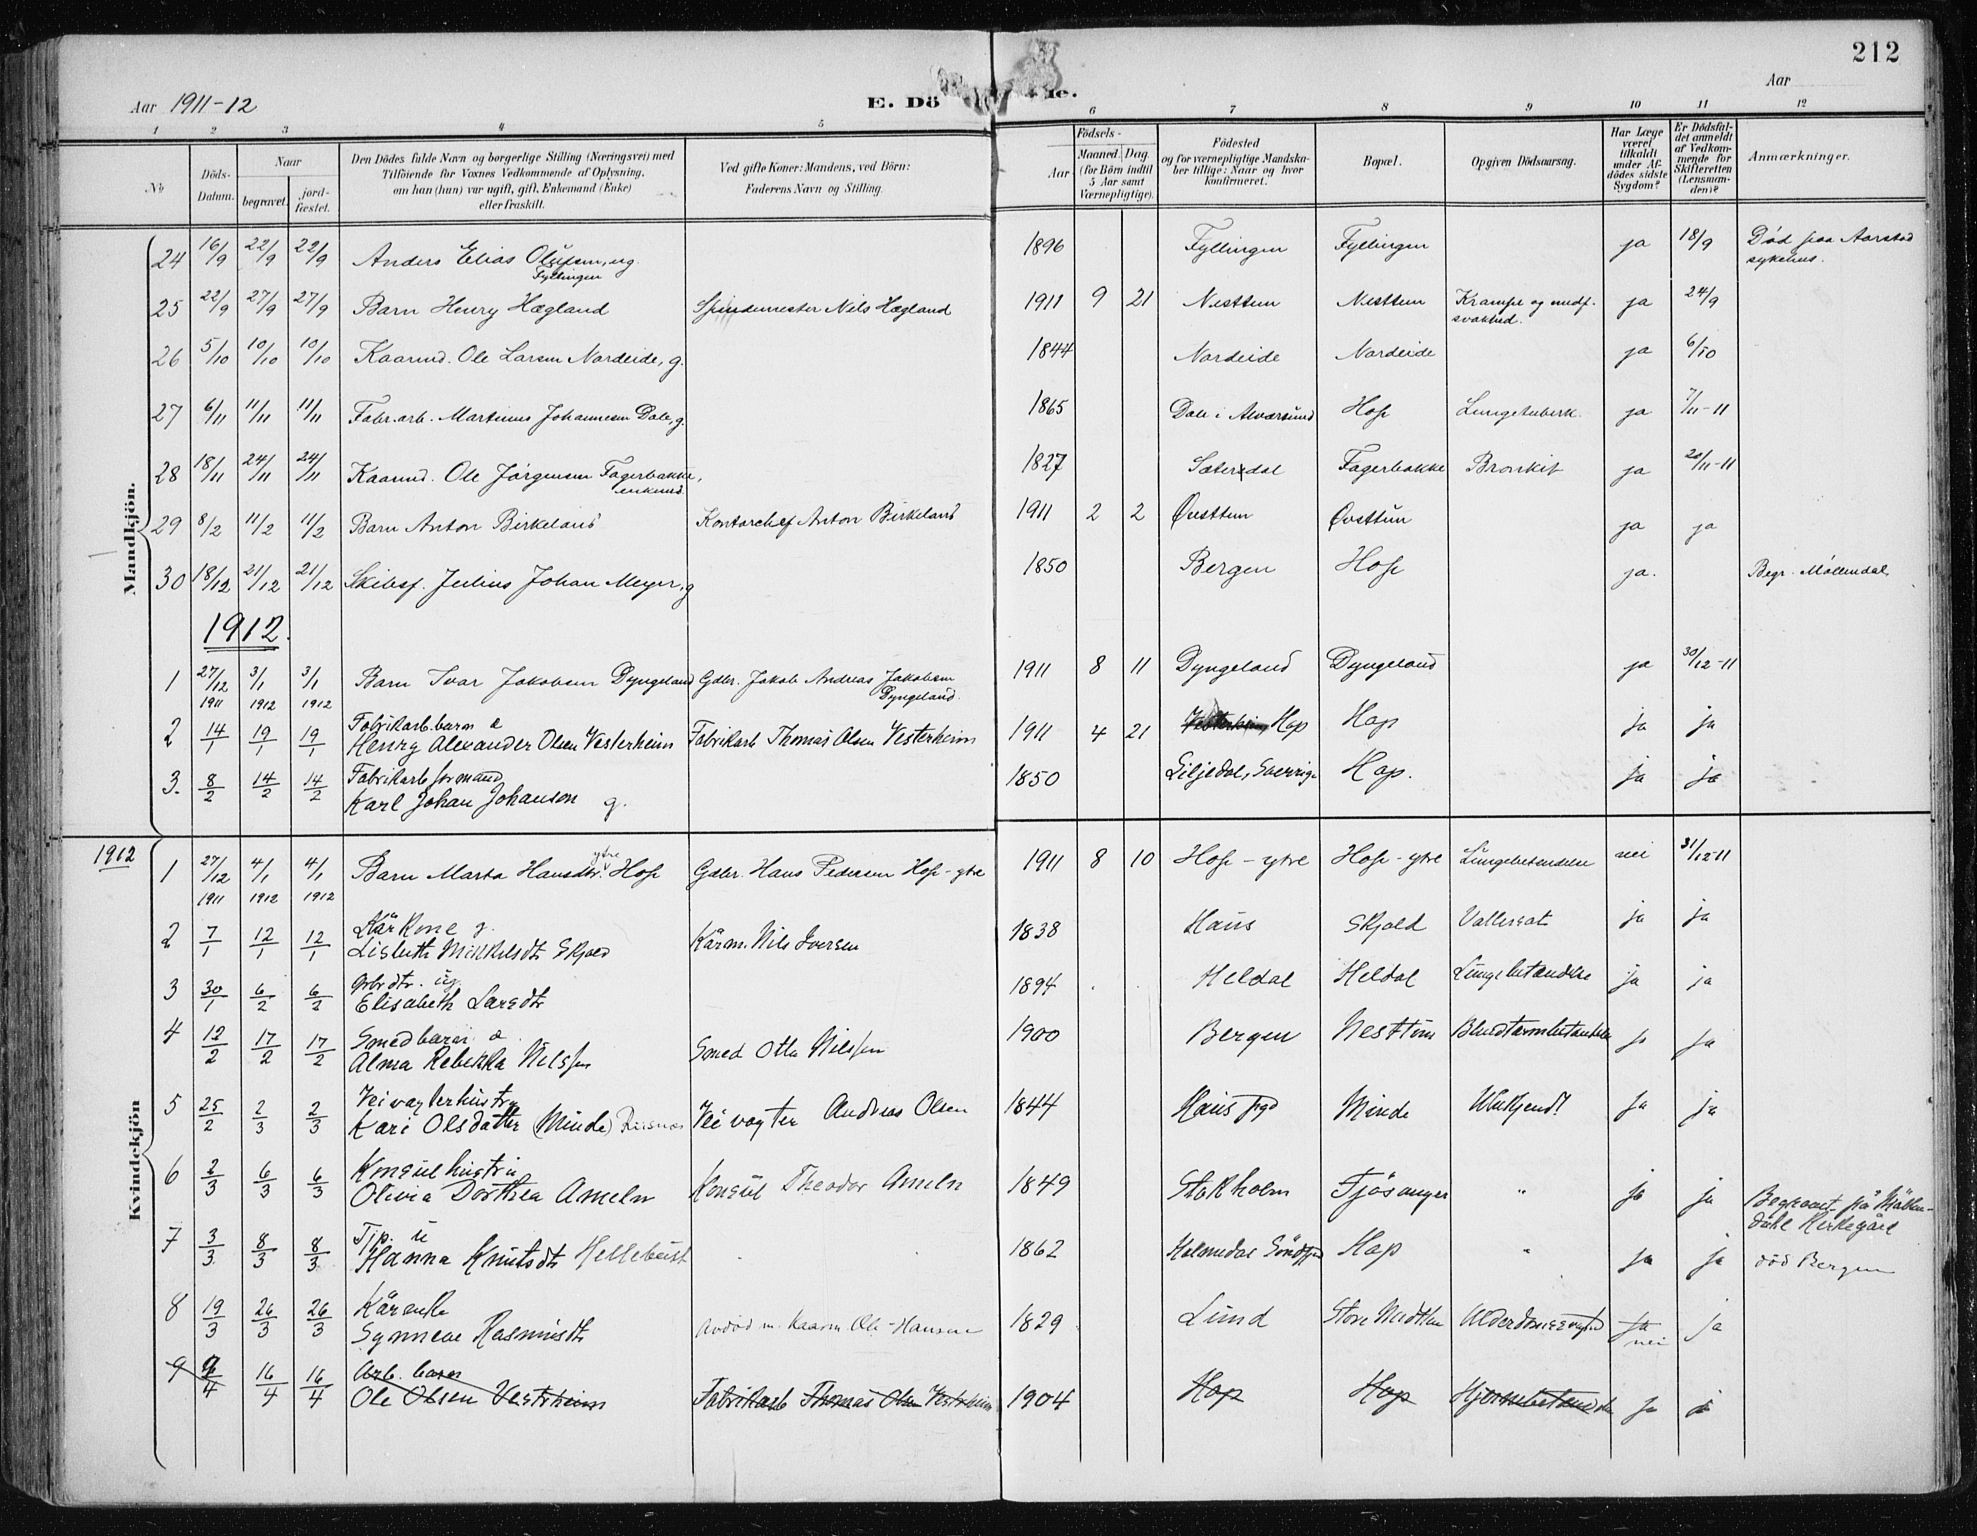 212
Aar 1911-12
E. Dö
de.
Aar
1 2 3 4 5 6 7 8 9 10 11 12
No
Döds-Datum.
Naar begravet. jordfæstet.
Den Dödes fulde Navn og borgerlige Stilling (Næringsvei) med Tilföiende for Voxnes Vedkommende af Oplysning, om han (hun) var ugift, gift, Enkemand (Enke) eller fraskilt.
Ved gifte Koner: Mandens, ved Börn: Faderens Navn og Stilling.
Födsels-
Aar
Maaned. Dag. (for Börn indtil 5 Aar samt Værnepligtige).
Födested og for værnepligtige Mandskaber tillige: Naar og hvor konfirmeret.
Bopæl.
Opgiven Dödsaarsag.
Har Læge været tilkaldt under Afdödes sidste Sygdom?
Er Dödsfaldet anmeldt af Vedkommende for Skifteretten (Lensmanden)?
Anmærkninger.
Mandkjön.
24 16/9 22/9 22/9 Anders Elias Olufsen, ug. Fyllingen 1896 Fyllingen Fyllingen ja 18/9 Død paa Aarstad sykehus.
25 22/9 27/9 27/9 Barn Henry Hægland Spindemester Nils Hægland 1911 9 21 Nesttun Nesttun Krampe og medf. svakhed. ja 24/9
26 5/10 10/10 10/10 Kaarmd. Ole Larsen Nordeide, g. 1844 Nordeide Nordeide ja 6/10
27 6/11 11/11 11/11 Fabr.arb. Martinus Johannesen Dale, g. 1865 Dale i Alværsund Hop Lungetuberk. ja 7/11-11
28 18/11 24/11 24/11 Kaarmd. Ole Jørgensen Fagerbakke, enkemd. 1827 Sæterdal Fagerbakke Bronkit ja 20/11-11
29 8/2 11/2 11/2 Barn Anton Birkeland Kontorchef Anton Birkeland 1911 2 2 Øvsttun Øvsttun ja ja
30 18/12 21/12 21/12 Skibsf. Julius Johan Meyer, g 1850 Bergen Hop ja. Begr. Møllendal
1912.
1 27/12 1911 3/1 1912 3/1 1912 Barn Ivar Jakobsen Dyngeland Gdbr. Jakob Andreas Jakobsen Dyngeland. 1911 8 11 Dyngeland Dyngeland ja 30/12-11
2 14/1 19/1 19/1 Fabrikarb.barn æ Henry Alexander Olsen Vesterheim Fabrikarb Thomas Olsen Vesterheim 1911 4 21 Vesterheim Hop Hop ja ja
3. 8/2 14/2 14/2 Fabrikarb formand Karl Johan Johanson g. 1850 Liljedal, Sverrige Hop. ja ja
1912
Kvindekjön
1 27/12 1911 4/1 1912 4/1 1912 Barn Marta Hansdtr. ytre Hop Gdbr. Hans Pedersen Hop-ytre 1911 8 10 Hop-ytre Hop-ytre Lungebetændelse nei 31/12-11
2 7/1 12/1 12/1 Kårkone g. Lisbeth Mikkelsdt Skjold Kårm. Nils Iversen 1838 Haus Skjold Vattersot ja ja
3 30/1 6/2 6/2 ug. Elisabeth Larsdtr 1894 Heldal Heldal Lungebetændelse ja ja
4 12/2 17/2 17/2 Smedbarn æ Alma Rebekka Nilssen Smed Otto Nilssen 1900 Bergen Nesttun Blindtarmbetændelse ja ja
5 25/2 2/3 2/3 Veivogterhustru Kari Olsdatter (Minde) Veivogter Andreas Olsen 1844 Haus pgd Minde Ubekjendt ja ja
6 2/3 6/3 6/3 Konsul hustru Olivia Dorthea Ameln Konsul Theodor Ameln 1849 Stokholm Fjösanger " ja ja Begravet på Möllendahl Kirkegård
7 3/3 8/3 8/3 Tjp. u Hanna Knutsdtr Hellebust 1862 Holmedal Söndfjord Hop " ja ja död Bergen
8 19/3 26/3 26/3 Kårenke Synneve Rasmusdtr avdød m. Kaarm Ole Hansen 1829 Lund Store Midttun Alderdomssvaghed ja nei ja
9 9/4 16/4 16/4 Arb. barn Ole Olsen Vestrheim Fabrikarb Thomas Olsen Vestrheim 1904 Hop Hop Hjernebetændelse ja ja